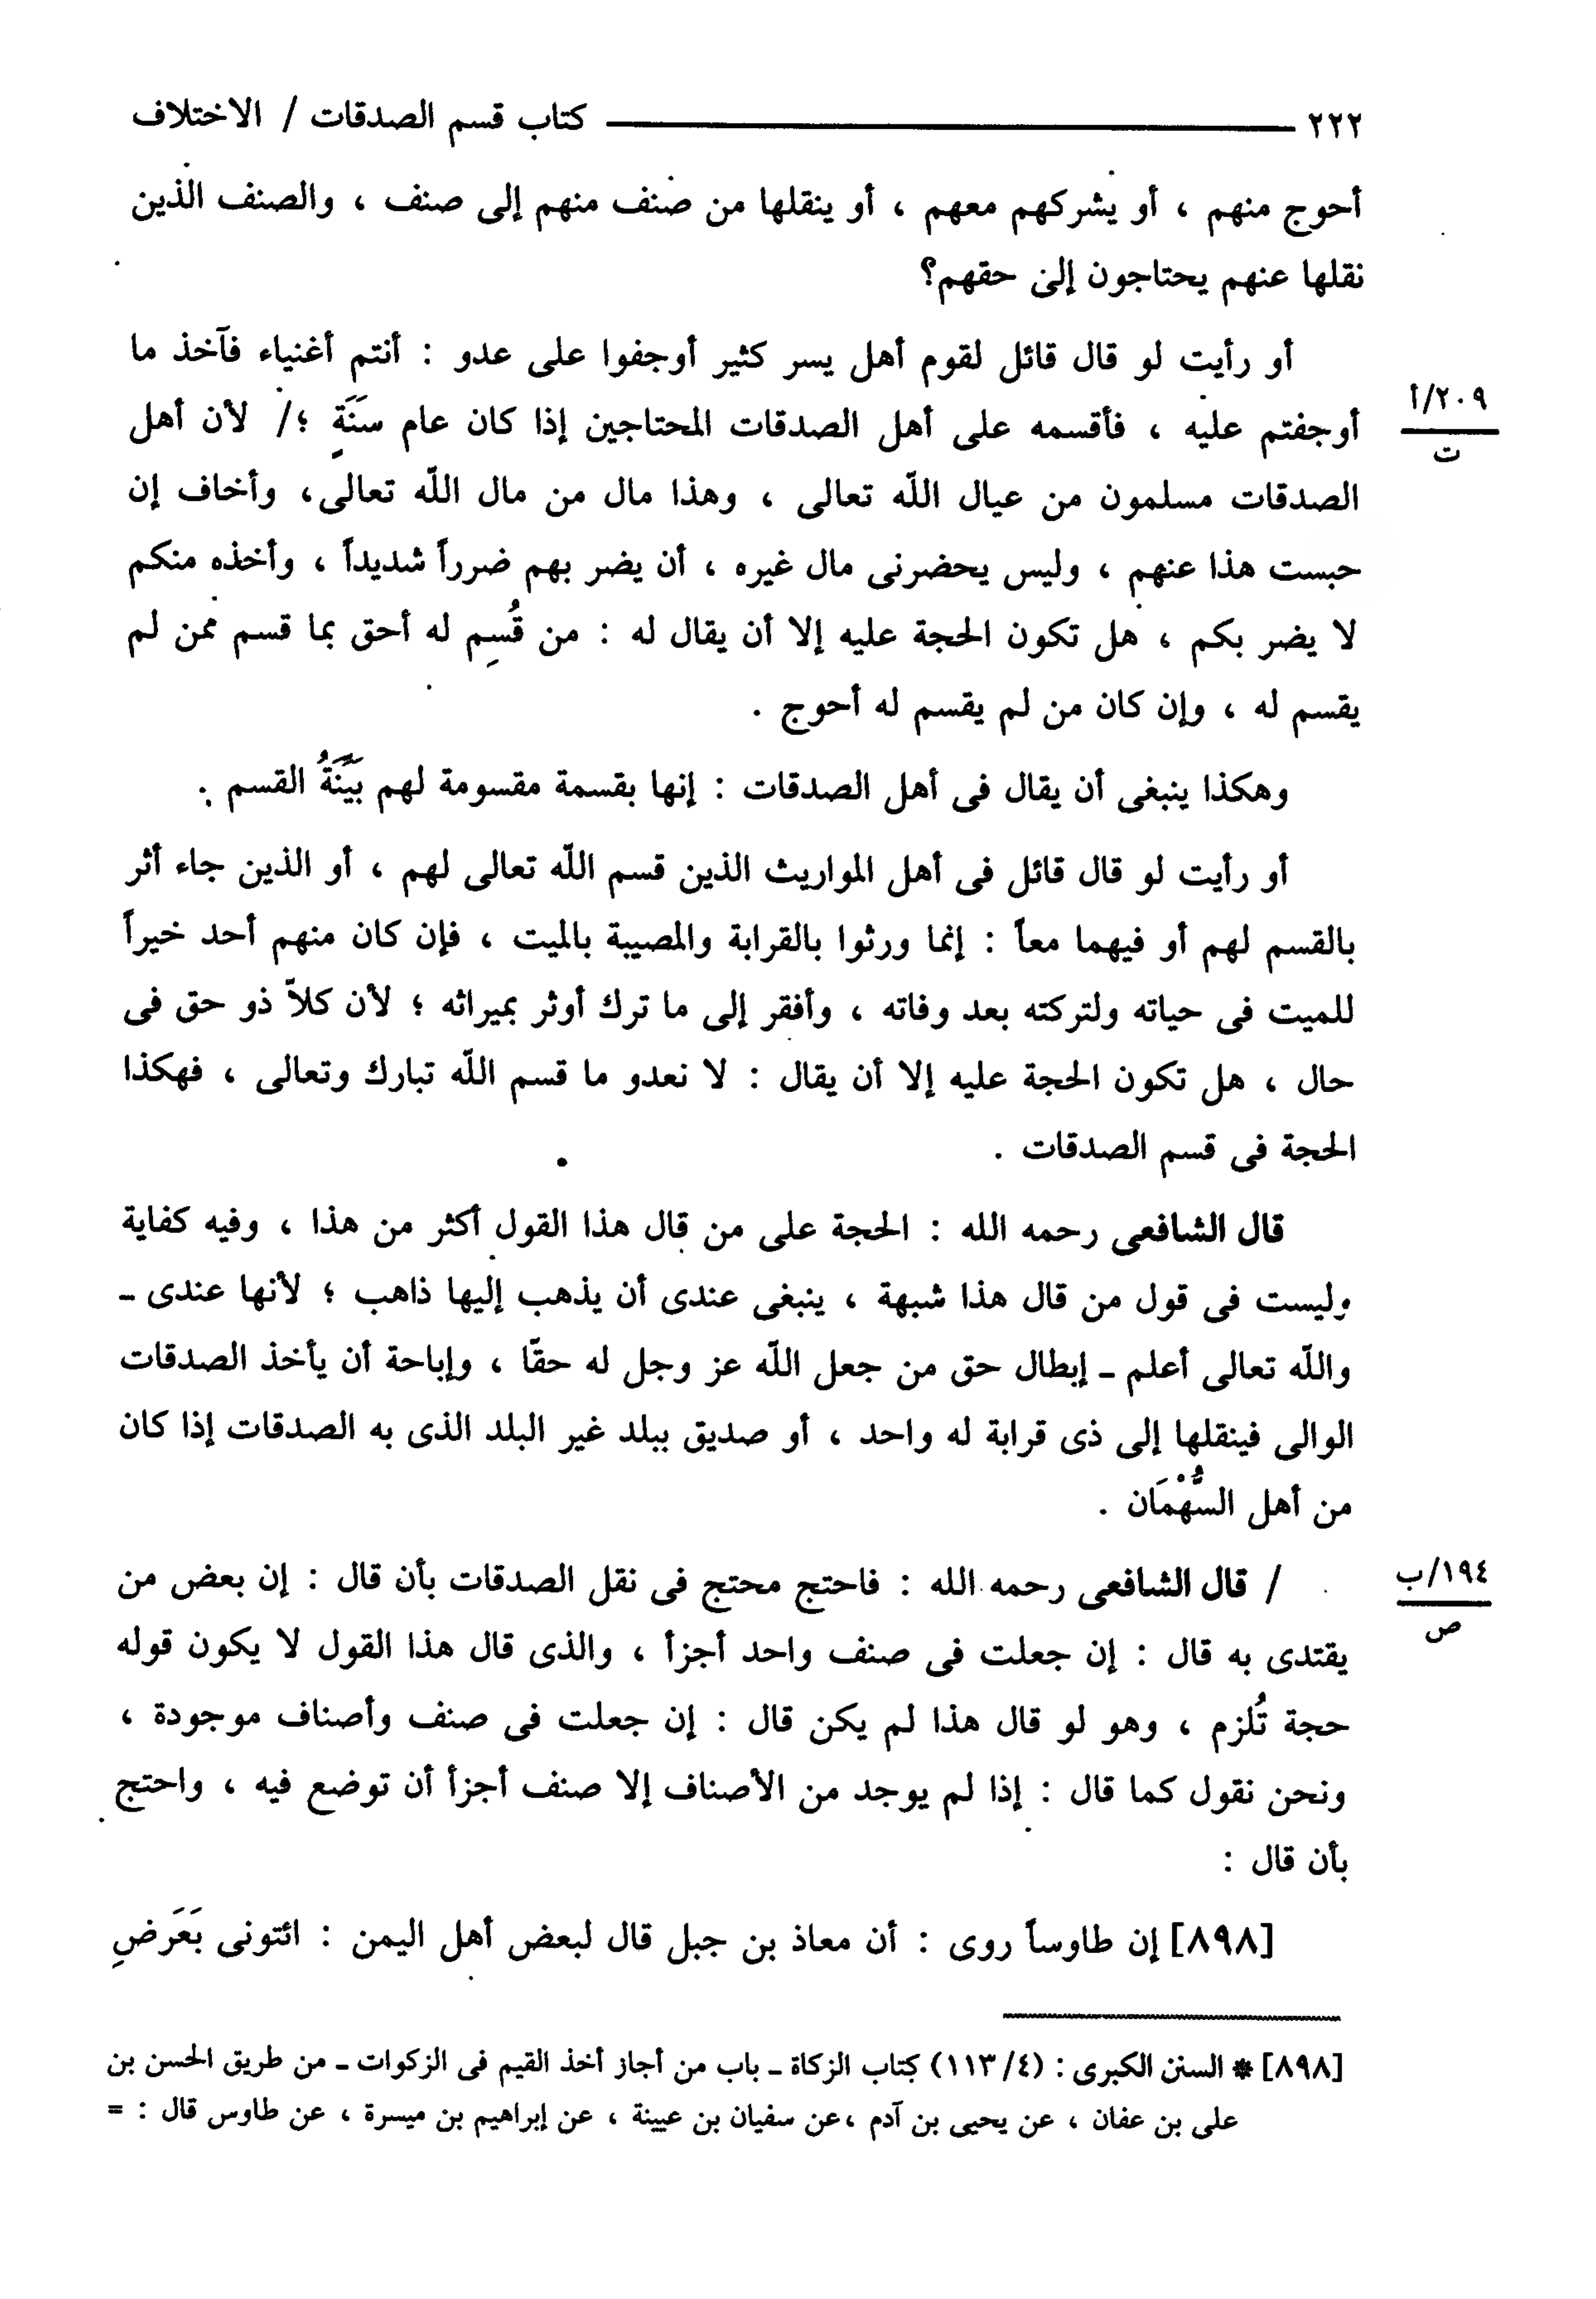 ٢٢٢ ــــــــــــــــــــ كتاب قسم الصدقات / الاختلاف
أحوج منهم ، أو يشركهم معهم ، أو ينقلها من صنف منهم إلى صنف ، والصنف الذين
نقلها عنهم يحتاجون إلى حقهم؟
أو رأيت لو قال قائل لقوم أهل يسر كثير أوجفوا على عدو : أنتم أغنياء فآخذ ما
أوجفتم عليه ، فأقسمه على أهل الصدقات المحتاجين إذا كان عام سَنَةٍ ؛/ لأن أهل
٢٠٩/أ
ت
الصدقات مسلمون من عيال اللّه تعالى ، وهذا مال من مال اللّه تعالى، وأخاف إن
حبست هذا عنهم ، وليس يحضرنى مال غيره ، أن يضر بهم ضرراً شديداً ، وأخذه منكم
لا يضر بكم ، هل تكون الحجة عليه إلا أن يقال له : من قُسِم له أحق بما قسم ممن لم
يقسم له ، وإن كان من لم يقسم له أحوج .
وهكذا ينبغى أن يقال فى أهل الصدقات : إنها بقسمة مقسومة لهم بَيِّنَةُ القسم .
أو رأيت لو قال قائل فى أهل المواريث الذين قسم اللّه تعالى لهم ، أو الذين جاء أثر
بالقسم لهم أو فيهما معاً : إنما ورثوا بالقرابة والمصيبة بالميت ، فإن كان منهم أحد خيراً
للميت فى حياته ولتركته بعد وفاته ، وأفقر إلى ما ترك أوثر بميراثه ؛ لأن كلاّ ذو حق فى
حال ، هل تكون الحجة عليه إلا أن يقال : لا نعدو ما قسم اللّه تبارك وتعالى ، فهكذا
الحجة فى قسم الصدقات .
قال الشافعى رحمه الله : الحجة على من قال هذا القول أكثر من هذا ، وفيه كفاية
وليست فى قول من قال هذا شبهة ، ينبغى عندى أن يذهب إليها ذاهب ؛ لأنها عندى ـ
واللّه تعالى أعلم ـ إبطال حق من جعل اللّه عز وجل له حقّا ، وإباحة أن يأخذ الصدقات
الوالى فينقلها إلى ذى قرابة له واحد ، أو صديق ببلد غير البلد الذى به الصدقات إذا كان
من أهل السُّهْمَان .
/ قال الشافعى رحمه الله : فاحتج محتج فى نقل الصدقات بأن قال : إن بعض من
١٩٤/ب
ص
يقتدى به قال : إن جعلت فى صنف واحد أجزأ ، والذى قال هذا القول لا يكون قوله
حجة تُلزم ، وهو لو قال هذا لم يكن قال : إن جعلت فى صنف وأصناف موجودة ،
ونحن نقول كما قال : إذا لم يوجد من الأصناف إلا صنف أجزأ أن توضع فيه ، واحتج
بأن قال :
[٨٩٨] إن طاوساً روى : أن معاذ بن جبل قال لبعض أهل اليمن : ائتونى بَعَرضِ
[٨٩٨] * السنن الكبرى : (٤/ ١١٣) كتاب الزكاة ـ باب من أجاز أخذ القيم فى الزكوات ـ من طريق الحسن بن
على بن عفان ، عن يحيى بن آدم ،عن سفيان بن عيينة ، عن إبراهيم بن ميسرة ، عن طاوس قال : =